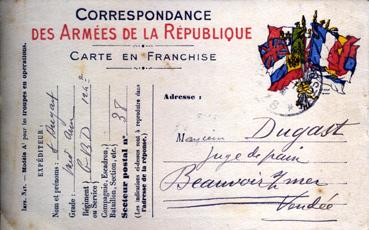 CORRESPONDANCE
DES ARMÉES DE LA RÉPUBLIQUE
CARTE EN FRANCHISE
Adresse :
Monsieur Dugast
Juge de paix
Beauvoir s/mer
Vendée
Modèle A¹ pour les troupes en opérations.
EXPÉDITEUR :
Nom et prénoms : Dugast
Grade :
Régiment
ou Service :
Compagnie, Escadron,
Batterie, Section, etc.
Secteur postal n° 38
(Les indications ci-dessus sont à reproduire dans
l'adresse de la réponse.)